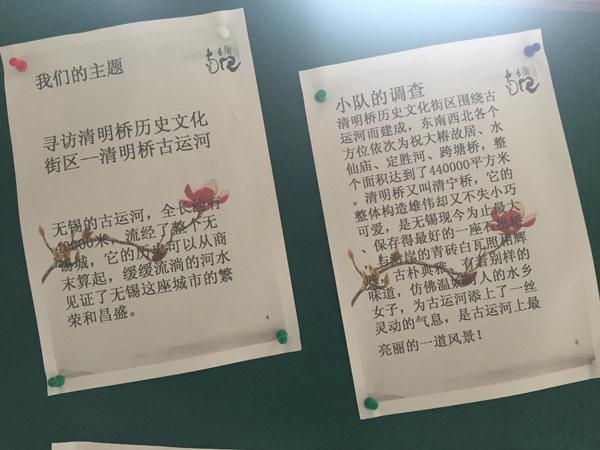 我们的主题
寻访清明桥历史文化
街区--清明桥古运河
无锡的古运河，全长约有
40000米，流经了整个无
锡城，它的历史可以从商
末算起，缓缓流淌的河水
见证了无锡这座城市的繁
荣和昌盛。
4
小队的调查
清明桥历史文化街区围绕古
运河而建成，东南西北各个
方位依次为祝大椿故居、水
仙庙、定胜河、跨塘桥，整
个面积达到了440000平方米
。清明桥又叫清宁桥，它的
整体构造雄伟却又不失小巧
可爱，是无锡现今为止最大
、保存得最好的一座
，与两岸的青砖白瓦照相辉
，古朴典雅，有着别样的
味道，仿佛温婉可人的水乡
女子，为古运河添上了一丝
灵动的气息，是古运河上最
亮丽的一道风景！
6